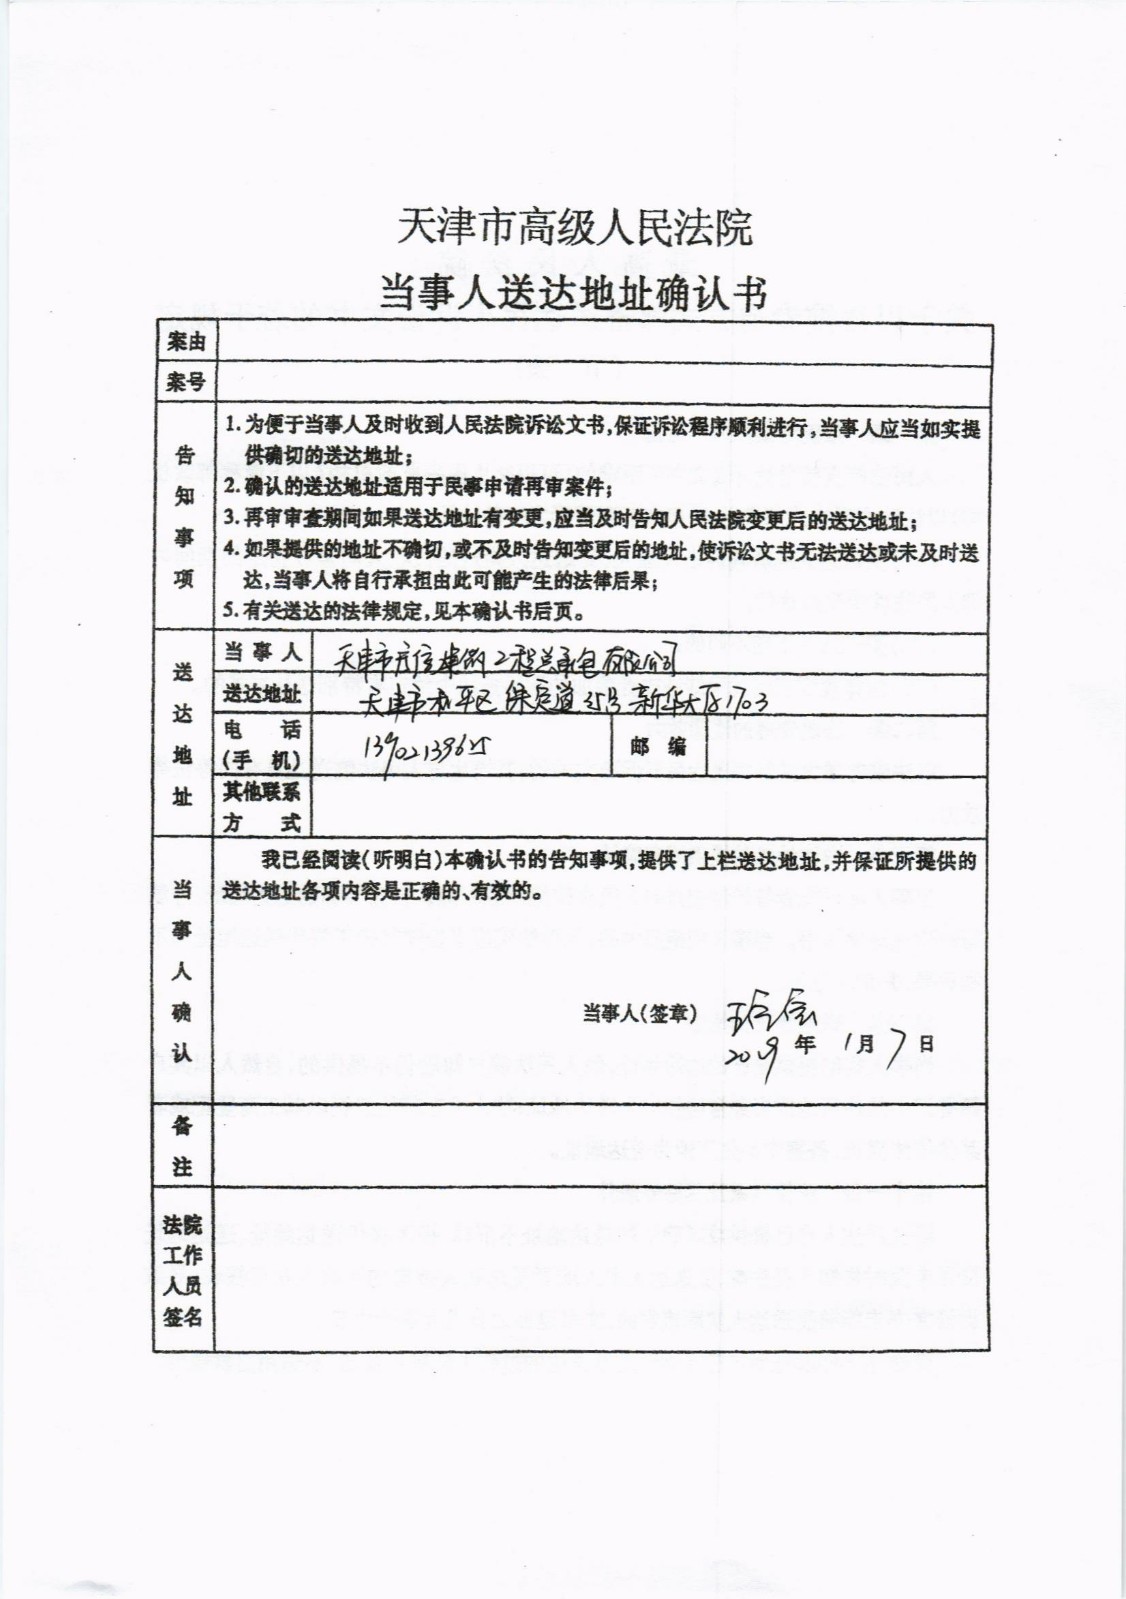 天津市高级人民法院
当事人送达地址确认书
案由
案号
告知事项
1.为便于当事人及时收到人民法院诉讼文书,保证诉讼程序顺利进行,当事人应当如实提
供确切的送达地址;
2.确认的送达地址适用于民事申请再审案件;
3.再审审查期间如果送达地址有变更,应当及时告知人民法院变更后的送达地址;
4.如果提供的地址不确切,或不及时告知变更后的地址,使诉讼文书无法送达或未及时送
达,当事人将自行承担由此可能产生的法律后果;
5.有关送达的法律规定,见本确认书后页。
送达地址
当事人
天津市 建筑工程总承包有限公司
送达地址
天津市和平区保定道35号新华大厦1703
电话
(手机)
邮编
其他联系
方式
当事人确认
我已经阅读(听明白)本确认书的告知事项,提供了上栏送达地址,并保证所提供的
送达地址各项内容是正确的、有效的。
当事人(签章)
2019年1月7日
备注
法院
工作
人员
签名